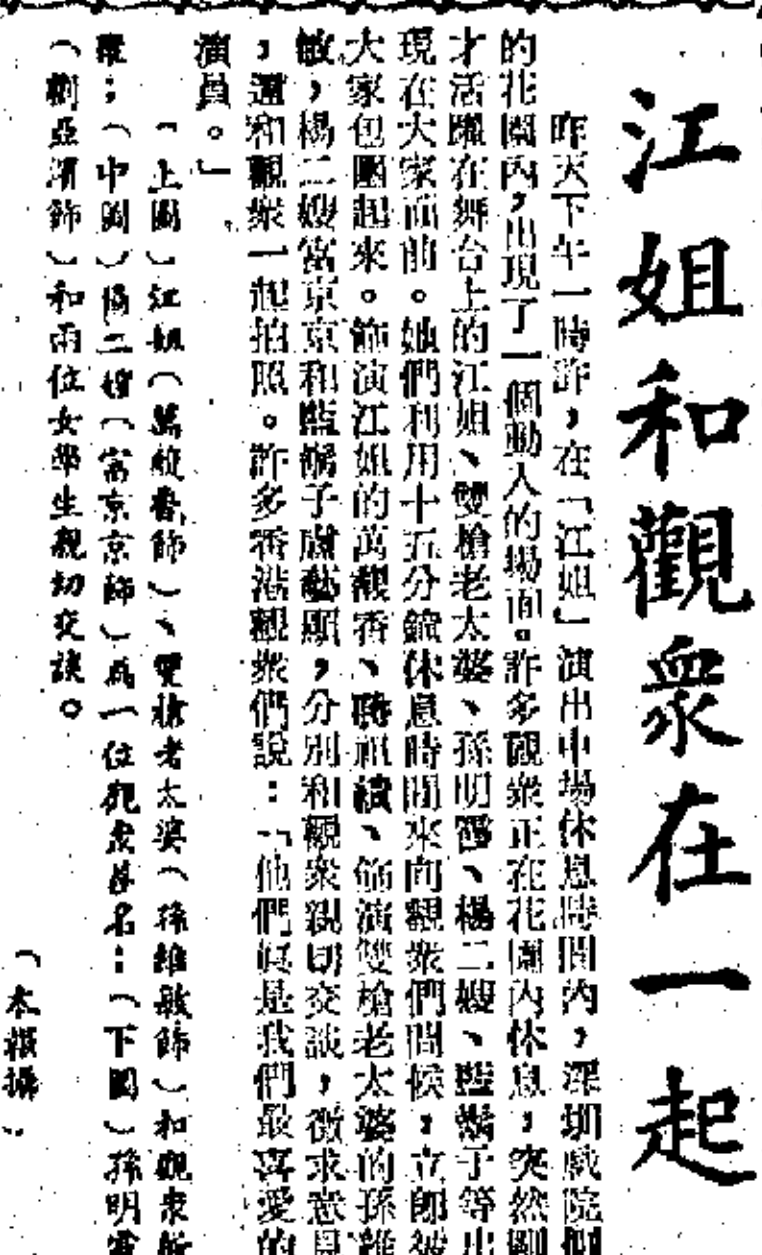 江姐和觀衆在一起
昨天下午一時許，在「江姐」演出中場休息時間內，深圳戲院側
的花園內，出現了一個動人的場面。許多觀衆正在花園內休息，突然剛
才活躍在舞台上的江姐、雙槍老太婆、孫明霞、楊二嫂、監獄子等出
現在大家面前。她們利用十五分鐘休息時間來向觀衆們問候，立即被
大家包圍起來。飾演江姐的萬馥香、蔣祖繢、飾演雙槍老太婆的孫維
敏，楊二嫂富京京和監獄子盧藝願，分別和觀衆親切交談，徵求意見
，還和觀衆一起拍照。許多香港觀衆們說：「他們眞是我們最喜愛的
演員。」
（上圖）江姐（萬馥香飾）、雙槍老太婆（孫維敏飾）和觀衆
（中圖）楊二嫂（富京京飾）爲一位觀衆簽名：（下圖）孫明霞
（劉亞濱飾）和兩位女學生親切交談。
（本報攝）